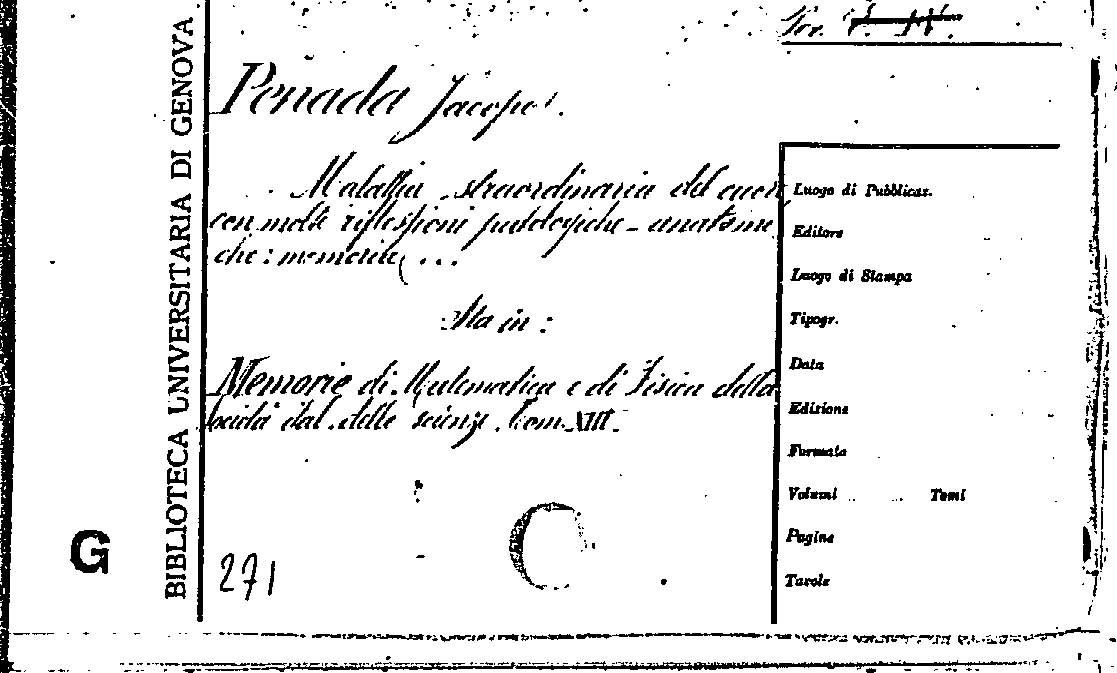 Penada Jacopo.
Malattia straordinaria del cuore
con molte riflessioni patologiche-anatomi
che: memoria ...
Sta in:
Memorie di Matematica e di Fisica della
Società Ital. delle scienze. Tom. XIII.
271
G
BIBLIOTECA UNIVERSITARIA DI GENOVA
Luogo di Pubblicaz.
Editore
Luogo di Stampa
Tipogr.
Data
Edizione
Formato
Volumi Tomi
Pagine
Tavole